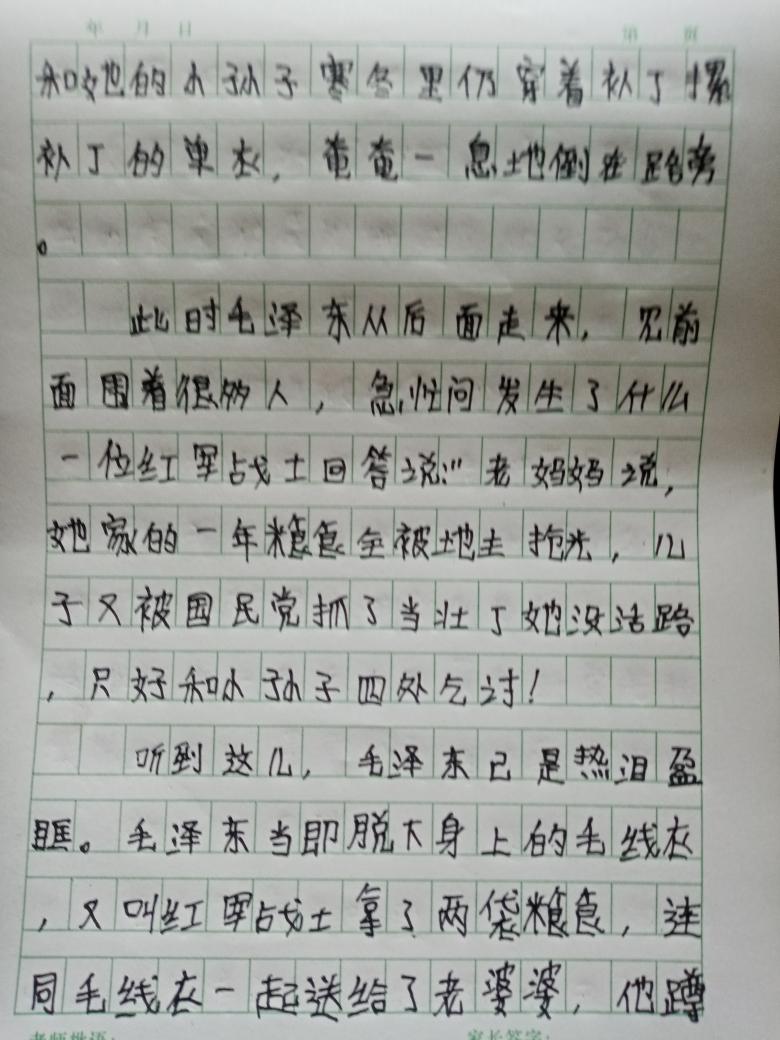 年 月 日 第 页
和她的小孙子寒冬里仍穿着补丁摞
补丁的单衣，奄奄一息地倒在路旁
。
此时毛泽东从后面走来，见前
面围着很多人，急忙问发生了什么
一位红军战士回答说：“老妈妈说，
她家的一年粮食全被地主抢光，儿
子又被国民党抓了当壮丁她没活路
，只好和小孙子四处乞讨！
听到这儿，毛泽东已是热泪盈
眶。毛泽东当即脱下身上的毛线衣
，又叫红军战士拿了两袋粮食，连
同毛线衣一起送给了老婆婆，他蹲
老师批语： 家长签字：